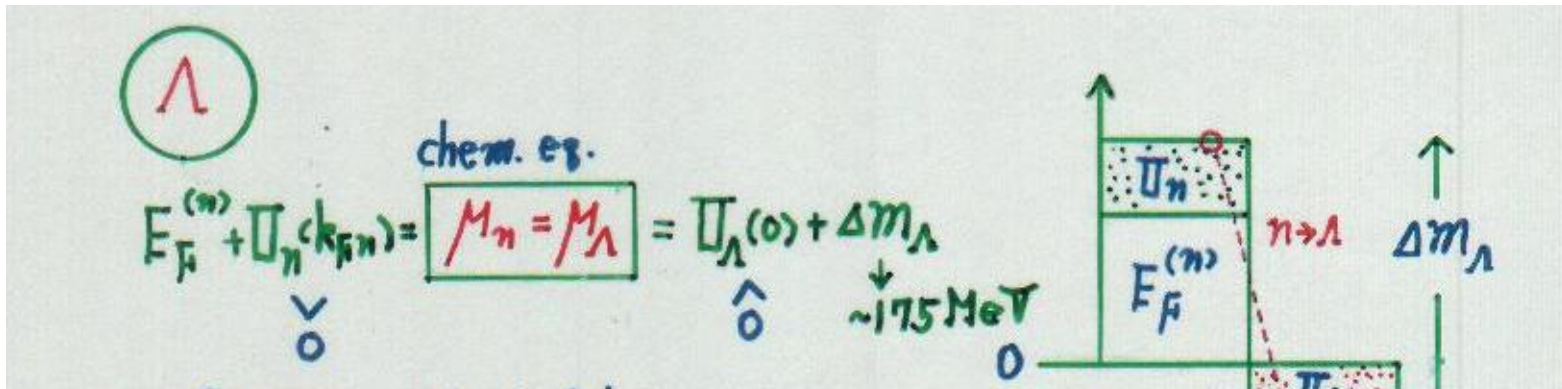 Λ
chem. eq.
E_F^(n) + U_n(k_Fn) = μ_n = μ_Λ = U_Λ(0) + Δm_Λ
∨ ∧ ↓
0 0 ~175 MeV
U_n
n→Λ Δm_Λ
E_F^(n)
0